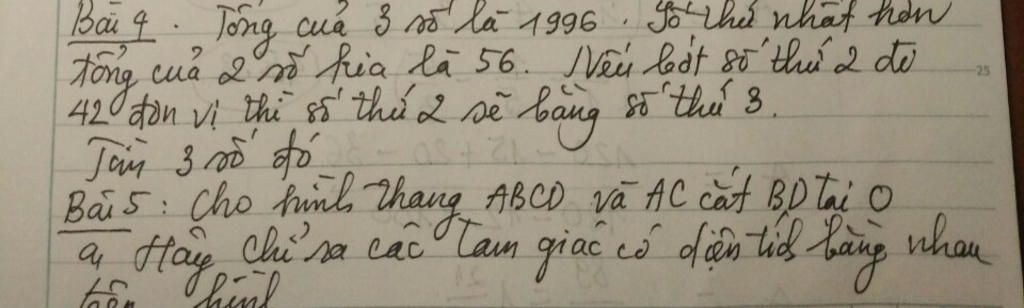 Bài 4. Tổng của 3 số là 1996. Số thứ nhất hơn
tổng của 2 số kia là 56. Nếu bớt số thứ 2 đi
42 đơn vị thì số thứ 2 sẽ bằng số thứ 3.
Tìm 3 số đó
Bài 5: Cho hình thang ABCD và AC cắt BD tại O
a, Hãy chỉ ra các tam giác có diện tích bằng nhau
trên hình